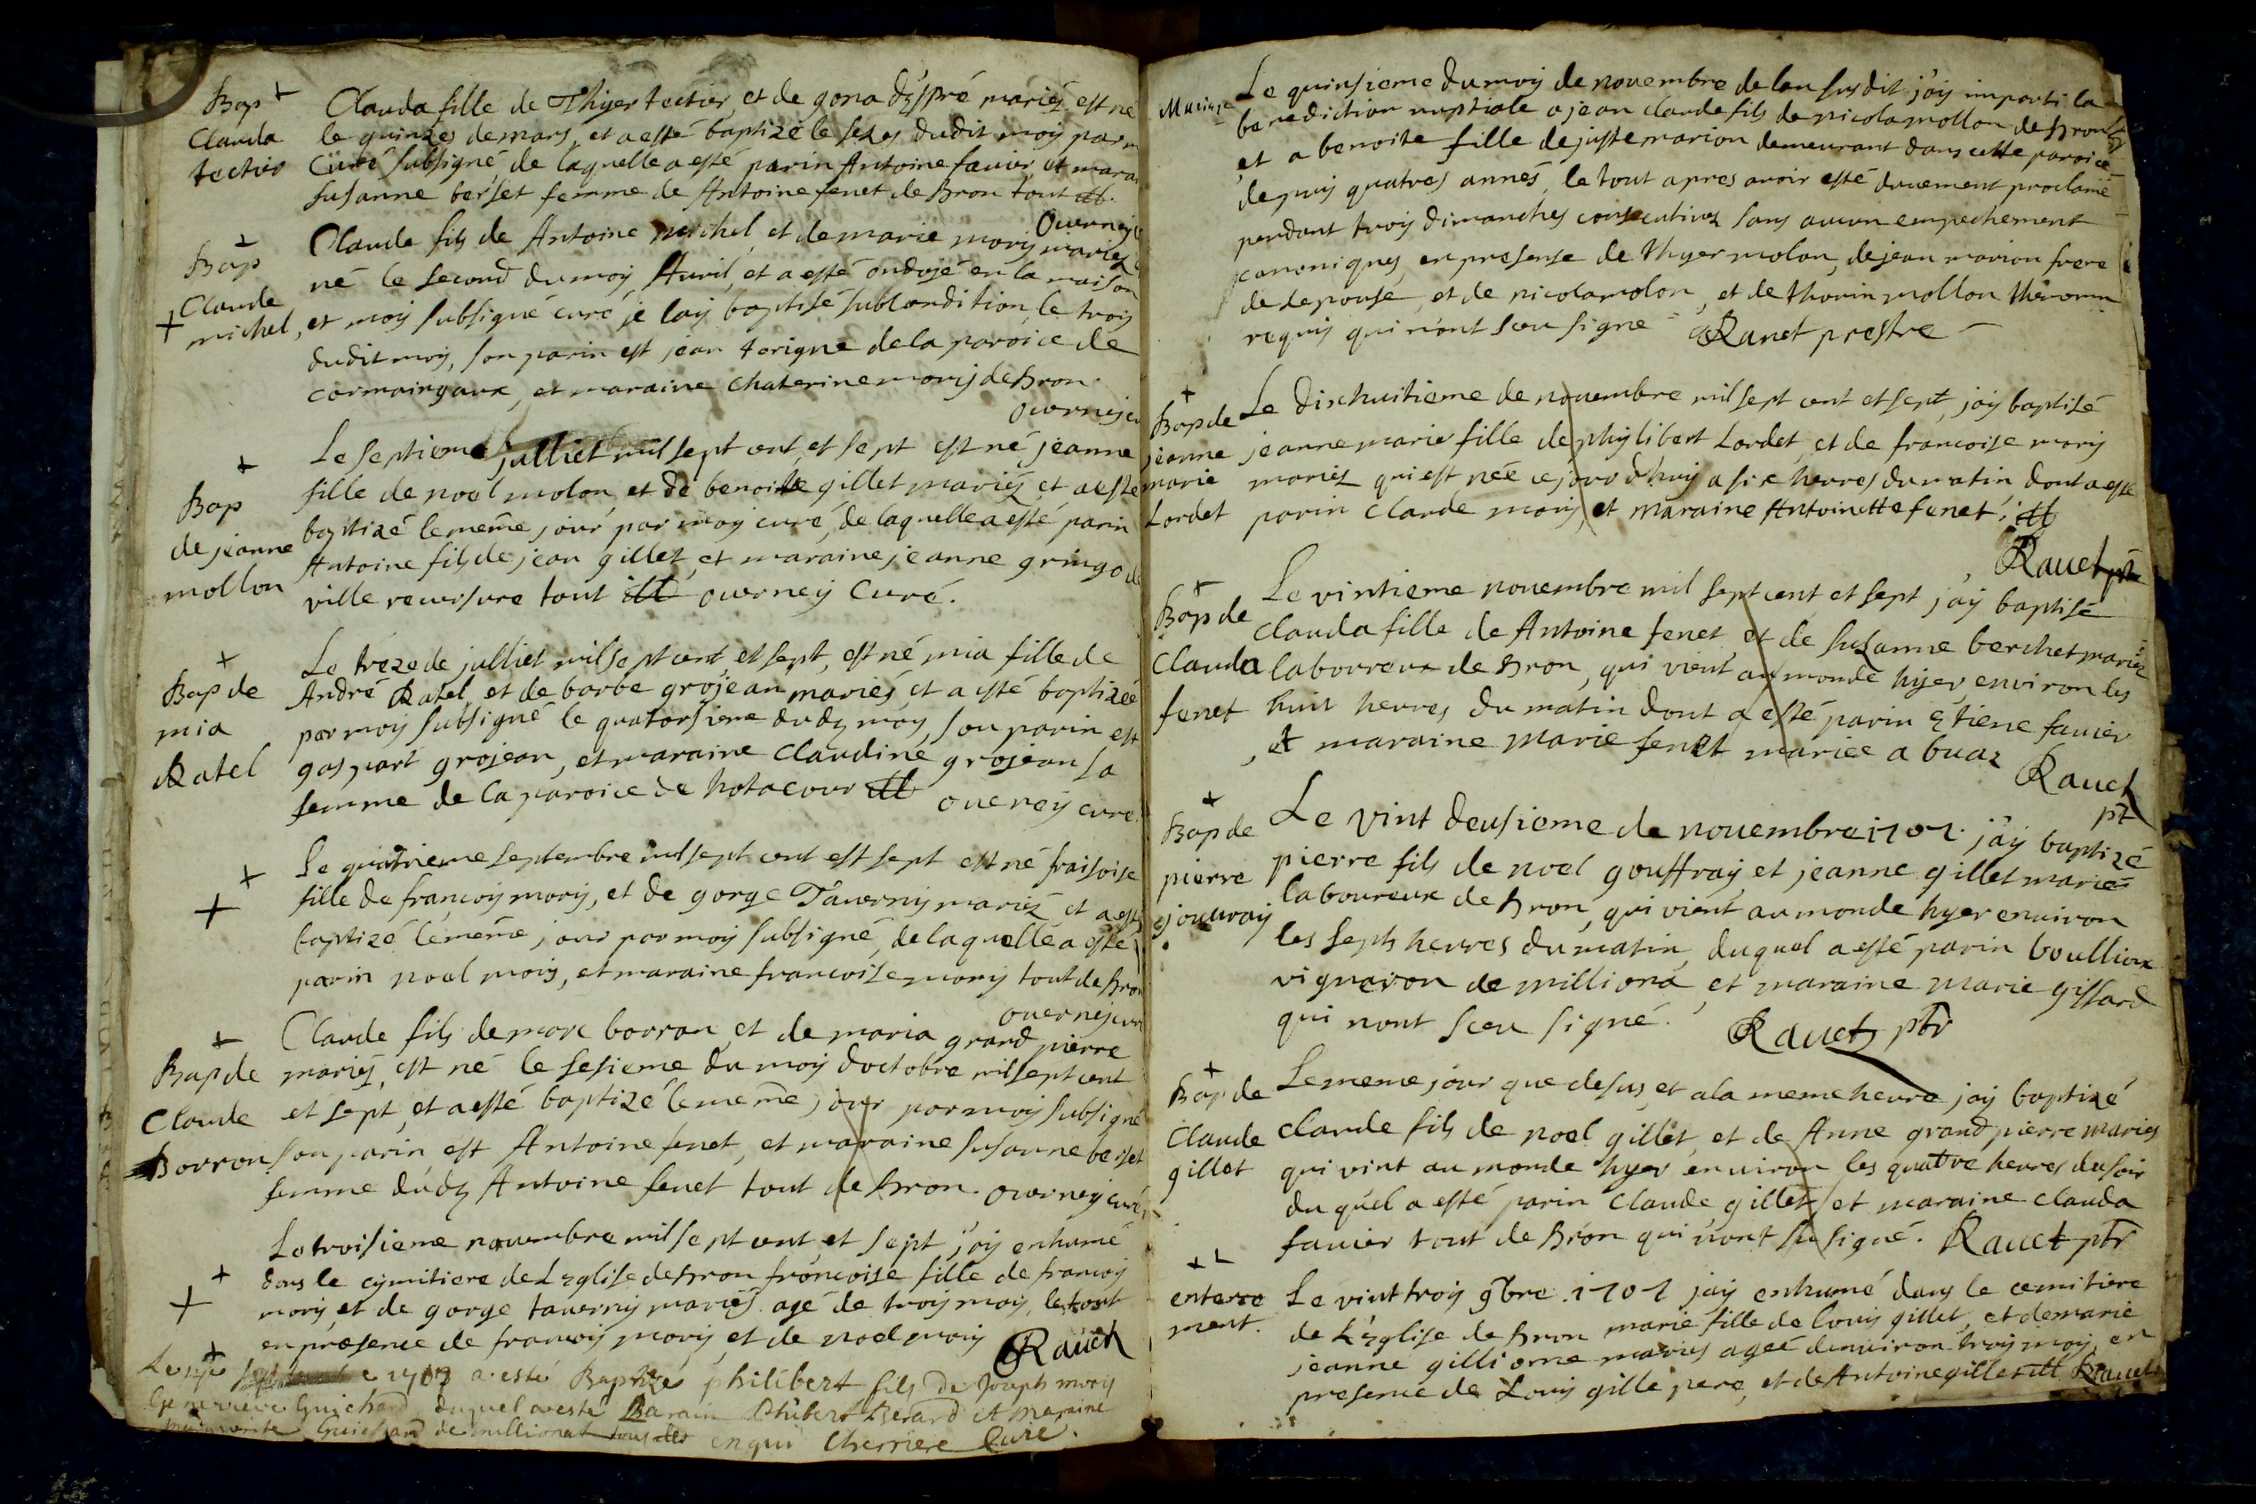 Bap
Clauda
tectier
Clauda fille de Thiyer tectier, et de gona dyspré mariés est né
le quinzes de mars, et a esté baptizé le sezes dudit moy par m
Curé subsigné, de laquelle a esté parin Antoine fauier, et mara
susanne berset femme de Antoine fenet de Bron tout ill.
ouerney
Bap
Claude
michel,
Claude fils de Antoine michel, et de marie morij mariez
né le second du moy Auril, et a esté ondojé en la maison
et moy subsigné curé je l'aij baptisé sub conditione le trois
dudit moy, son parin est jean torigne de la paroice de
cormaingaux, et maraine chaterine morij de Bron.
ouerneij cu
Bap
de jeanne
mollon
Le septieme julliet mil sept cent et sept est né jeanne
fille de noel molon, et de benoite gillet mariéz et a esté
baptizé le meme jour par moy curé, de laquelle a esté parin
Antoine fils de jean gillet, et maraine jeanne gringo de
ville reuersure tout ill ouerney Curé.
Bap de
mia
Ratel
Le treze de julliet mil sept cent et sept, est né mia fille de
André Ratel, et de barbe grojean mariés et a esté baptizeé
par moy subsigné le quatorsieme dudz moy, son parin est
gaspart grojean, et maraine Claudine grojean sa
femme de la paroice de hotacour ill ouerneij curé.
Le quatrieme septembre mil sept cent est sept est né fraisoise
fille de francoy morij, et de gorge Tauernij mariéz et a esté
baptizé le meme jour par moy subsigné, de laquelle a esté
parin noel morij, et maraine francoise morij tout de Bron
ouerneij curé
Bap de
Claude
Borron
Claude fils de marc borron, et de maria grand pierre
mariéz, est né le sesieme du moy doctobre mil sept cent
et sept, et a esté baptizé le meme jour par moy subsigné
son parin est Antoine fenet, et maraine susanne berset
femme dudz Antoine fenet tout de Bron. ouerneij curé,
Le troisieme nouembre mil sept cent et sept j'aij enhumé
dans le cymitiere de L'eglise de Bron francoise fille de francoy
morij et de gorge tauernij mariés agé de troy moy, le tout
en presence de francoy morij et de noel morij Rauet
1707 a esté Baptizé philibert fils de Joseph morij
Genevieve Guichard duquel a esté Parain Philibert Berard et Maraine
marguerite Guichard de millionat tous
enqui Cherriere Curé.
Mariage
Le quinsieme du moy de nouembre de lan susdit j'aij imparti la
benediction nuptiale a jean claude fils de nicola mollon de Bron
et a benoite fille de juste marion demeurant dans cette paroice
depuis quatres annés, le tout apres avoir esté duuement proclamé
pendant troy dimanches consecutives sans aucun empechement
canoniques, en presense de thyer molon, de jean marion frere
de lepouse, et de nicola molon, et de thonin mollon
requis qui n'ont sceu signé Rauet prestre
Bap de
jeanne
marie
Lordet
Le dixhuitieme de nouembre mil sept cent et sept, j'aij baptisé
jeanne marie fille de phylibert Lordet, et de francoise morij
mariéz qui est née ce jourdhuy a six heures du matin dont a esté
parin Claude morij, et maraine Antoinette fenet; ill
Rauet ptr
Bap de
Clauda
fenet
Le vintieme nouembre mil sept cent et sept j'aij baptisé
Clauda fille de Antoine fenet, et de susanne berchet mariéz
laboureux de Bron, qui vient au monde hijer, environ les
huit heures du matin dont a esté parin Etiene fauier
et maraine marie fenet mariée a buaz
Rauet
pt
Bap de
pierre
gouuraij
Le vint deusieme de nouembre 1707. j'aij baptizé
pierre fils de noel gouffraij, et jeanne gillet mariés
laboureux de Bron, qui vient au monde hyer environ
les septs heures du matin, duquel a esté parin boullieux
vigneron de milliona, et maraine marie gissard
qui nont sceu signé. Rauet ptr
Bap de
Claude
gillet
Le meme jour que desus, et a la meme heure j'aij baptizé
Claude fils de noel gillet, et de Anne grand pierre mariés
qui vint au monde hyer environ les quattre heures du soir
du quel a esté parin Claude gillet, et maraine clauda
fauier tout de Bron qui n'ont su signé. Rauet ptr
enterre
ment.
Le vint troy 9bre. 1707 j'aij enhumé dans le cemitiere
de L'eglise de Bron marie fille de Louis gillet, et de marie
jeanne gilliome mariés ageé denuiron troy moy, en
presence de Louis gille pere, et de Antoine gillet ill Rauet